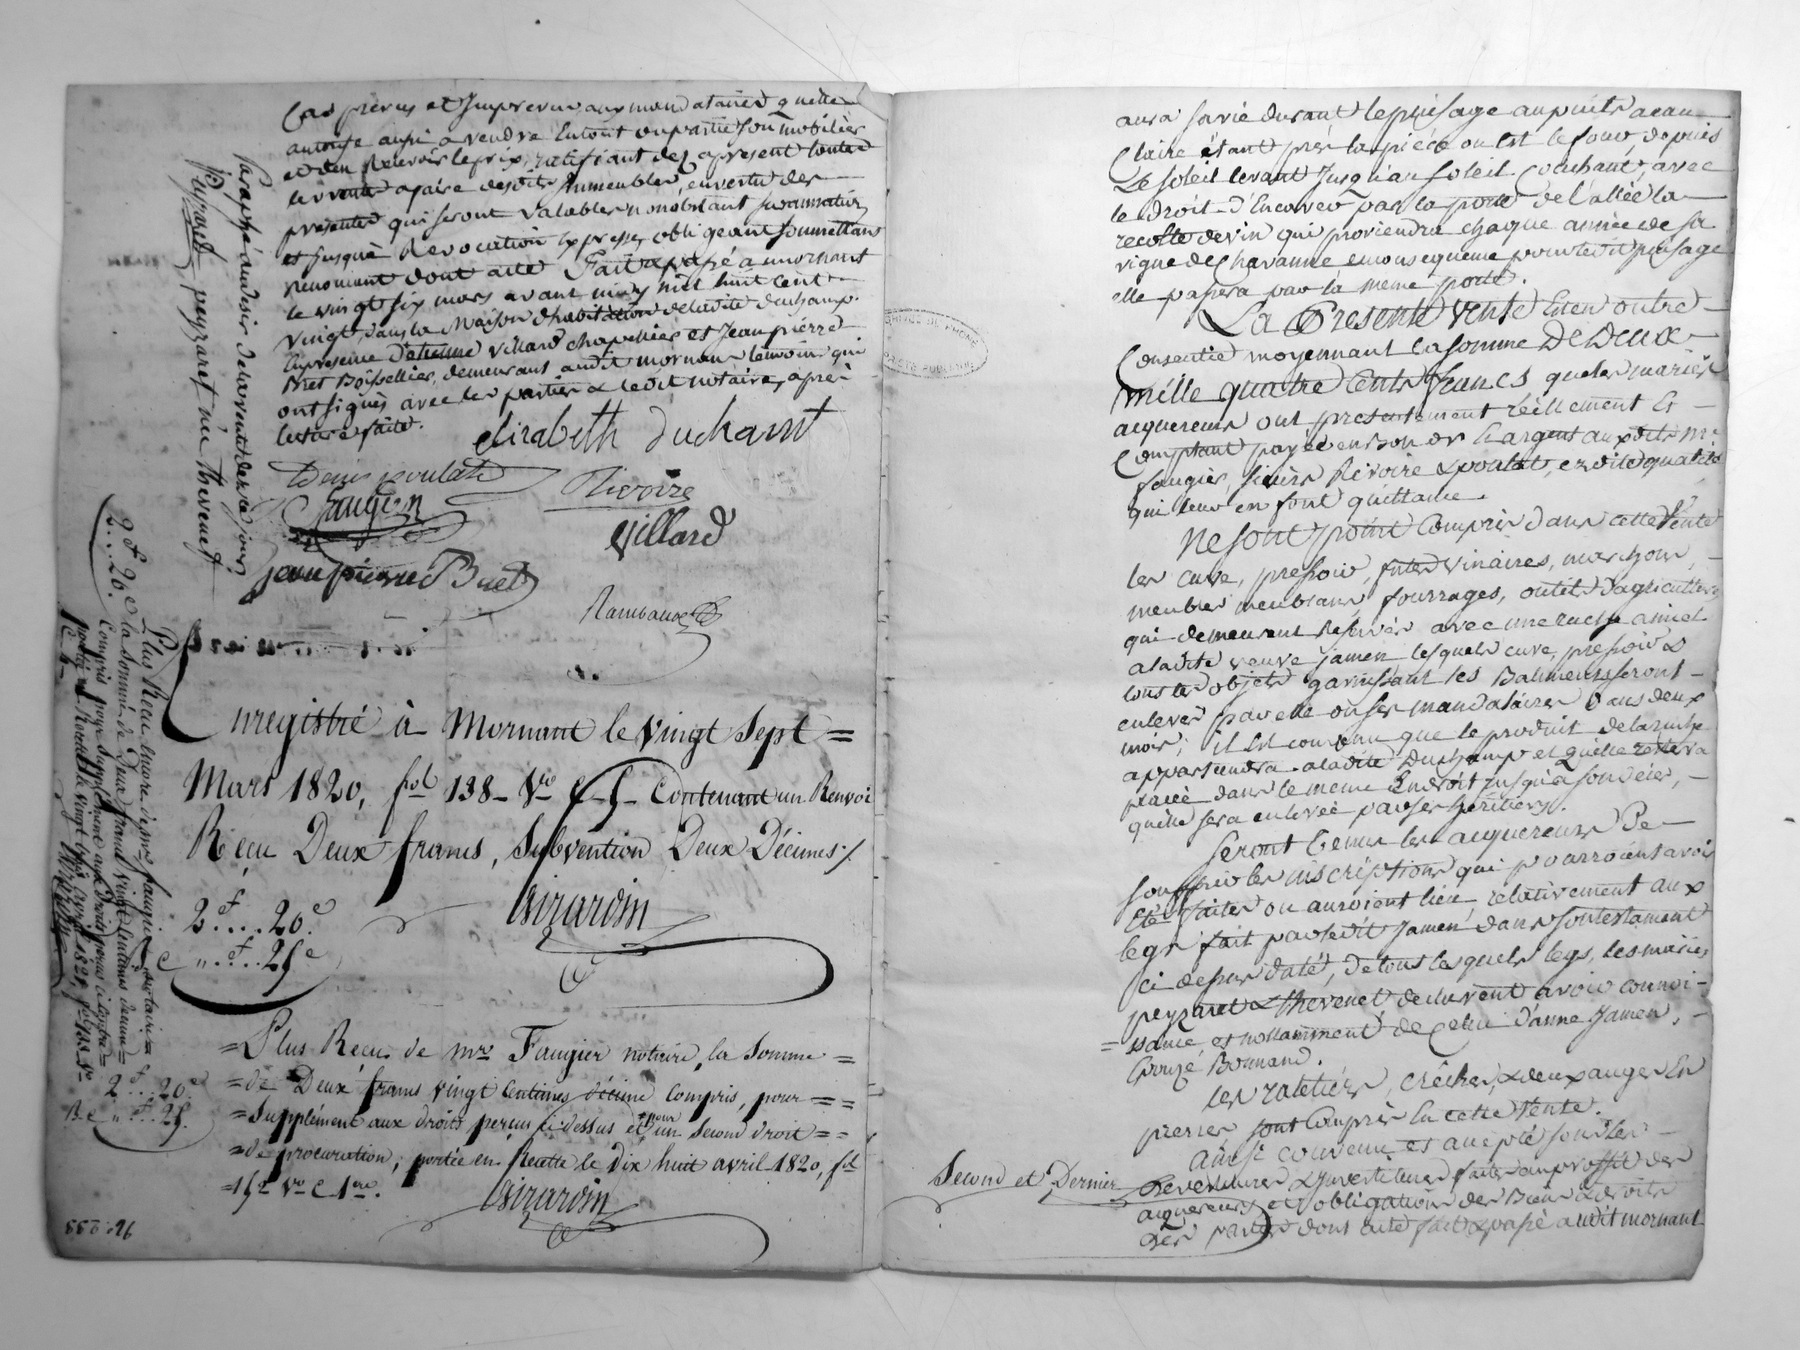 Cas prévus et Imprevus aux mandataires quelle
autorise aussi a vendre Entout ou partie son mobilier
et d'en Recevoir le prix, ratifiant des apresent toutes
les ventes a faire desdits Immeubles, en vertu des
presentes qui seront valables nonobstant surannation
et jusquà Revocation Expresse, obligeant soumettant
renoncant dont acte Fait & passé a mornant
le vingt six mars avant midy mil huit cent
vingt, dans la Maison d'habitation deladite duchamp.
En presence d'etienne villard chapellier et Jean pierre
Buet Boisselier, demeurant audit mornant temoins qui
ont signés avec les parties & ledit notaire, après
lecture faite.
elizabeth duchamt
Denis poulat
Rivoire
Faugier
villard
jean pierre Buet
Rambaud
Paraphé au desir de la vente de ce jour
Peyzaret peyzaret née thevenet
Enregistré à Mornant le vingt Sept =
Mars 1820, fol 138 - Vo C. 5 - Contenant un Renvoi
Recu Deux francs, Subvention Deux Décimes ./.
2f....20c.
Rc "..f..25c
Girardin
= Plus Recu de mre Faugier notaire, la Somme =
= de Deux francs vingt Centimes décime Compris, pour = =
= Supplément aux droits perçus ci dessus et pour un second droit = =
= de procuration; portée en Recette le Dix huit avril 1820, fol
= 152 Vo C 1ere.
Girardin
2f....20c
Rc "..f..25.
Plus Recu encore de mre faugier notaire =
2f 20c la somme de Deux francs vingt Centimes décime =
Compris pour Supplément aux Droits perçus ci contre =
portée en Recette le vingt
Girardin
aura sa vie durant le puisage au puits a eau
Claire étant près la pièce ou Est le four, depuis
Le soleil levant Jusqu'au soleil Couchant, avec
le droit d'Encaver par la porte de l'allée la
recolte de vin qui proviendra chaque année de sa
vigne de Chavanne en consequence pour ledit puisage
elle passera par la même porte.
La Presente vente Est en outre
Consentie moyennant la somme De Deux
mille quatre Cents francs que les mariés
acquereurs ont presentement réellement Et
Comptant payée en bon or & argent auxdits Mre
faugier, sieurs Rivoire & poulat, en dite qualité
qui leur en font quittance.
Ne sont point Compris dans cette Vente
les cuve, pressoir, futes vinaires, marchons,
meubles meublans, fourrages, outils d'agriculture
qui demeurent reservés avec une ruche a miel
a ladite veuve jamen lesquels cuve, pressoir &
tous les objets garnissant les Batimens seront
enlevés par elle ou ses mandataires Dans deux
mois; il Est convenu que le produit de la ruche
appartiendra a ladite Duchamp et qu'elle restera
placée dans le meme Endroit jusqu'a son décés,
qu'elle sera enlevée par ses héritiers.
Seront tenus les acquereurs De
souffrir les inscriptions qui pourroient avoir
Eté faites ou auroient lieu, relativement aux
legs fait par ledit Jamen dans son testament
ci dessus daté, de tous lesquels legs, les mariés
peyzaret & thevenet declarent avoir connoi-
= ssance et notamment de Celui d'anne Jamen,
Epouse Bonnand.
les rateliers, crêches, & deux auges En
pierres sont Compris En cette Vente.
Ainsi convenu et accepté sous les
Devestitures & Investitures faites au proffit des
acquereurs et obligation des Biens & droits
des parties dont acte fait & passé audit mornant
Second et Dernier